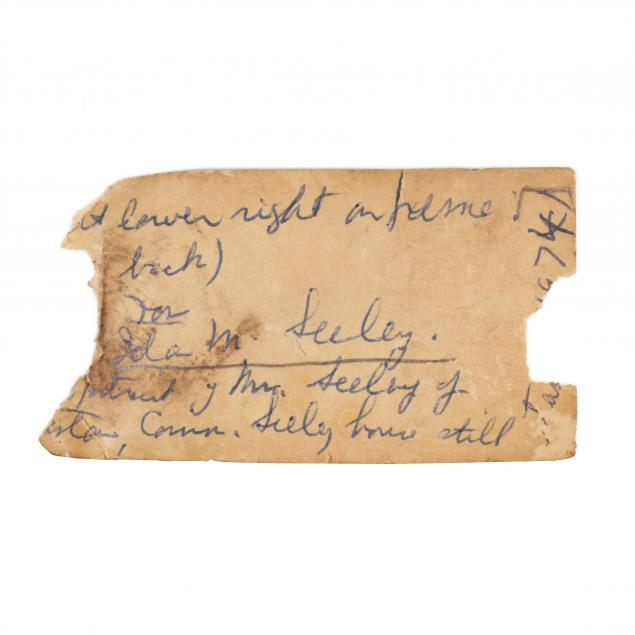 at lower right on frame
back)
for
Ida M. Seeley.
portrait of Mrs. Seeley of
Conn. Seeley house still
1974